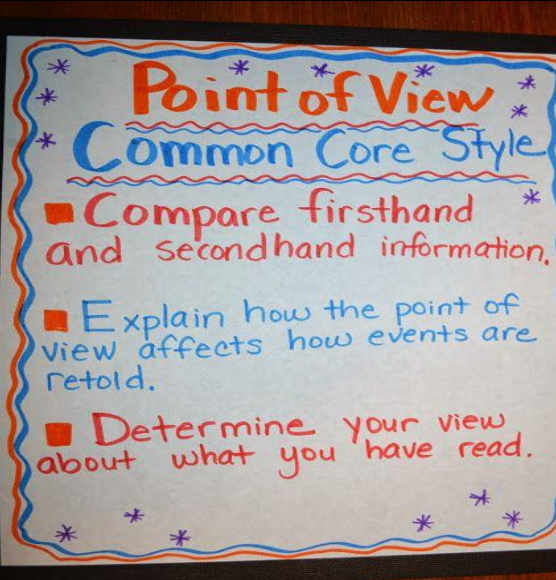 Point of View
Common Core Style
Compare firsthand
and secondhand information.
Explain how the point of
view affects how events are
retold.
Determine your view
about what you have read.